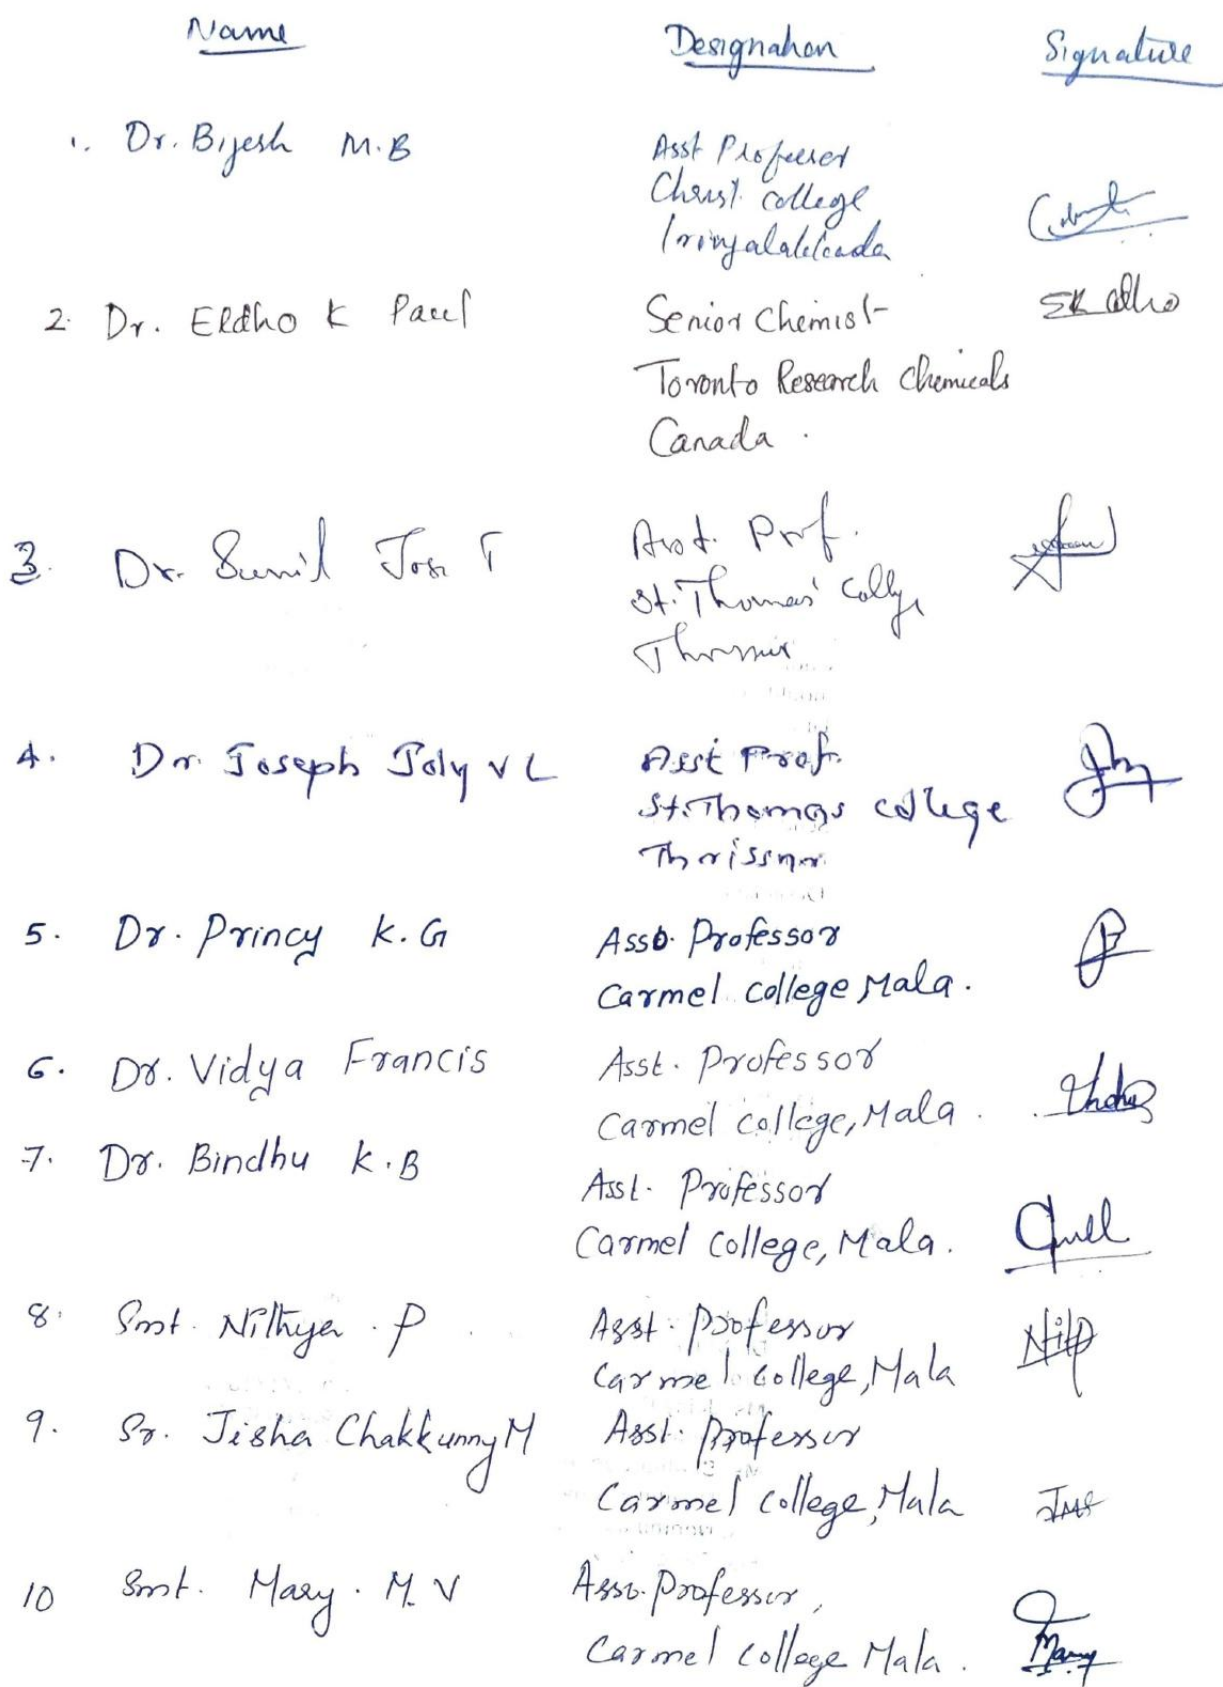 Name Designation Signature
1. Dr. Bijesh M.B Asst Professor
Christ college
Irinjalakkuda
2. Dr. Eldho K Paul Senior Chemist
Toronto Research Chemicals
Canada.
3. Dr. Sunil Jose T Asst. Prof.
St. Thomas' College
Thrissur
4. Dr. Joseph Joly V L Asst Prof.
St. Thomas college
Thrissur
5. Dr. Princy K.G Asso. Professor
Carmel college Mala.
6. Dr. Vidya Francis Asst. Professor
Carmel college, Mala.
7. Dr. Bindhu K.B Asst. Professor
Carmel college, Mala.
8. Smt. Nithya. P Asst. Professor
Carmel college, Mala
9. Sr. Jisha Chakkunny M Asst. Professor
Carmel college, Mala
10 Smt. Mary. M. V Asso. Professor,
Carmel college Mala. Mary